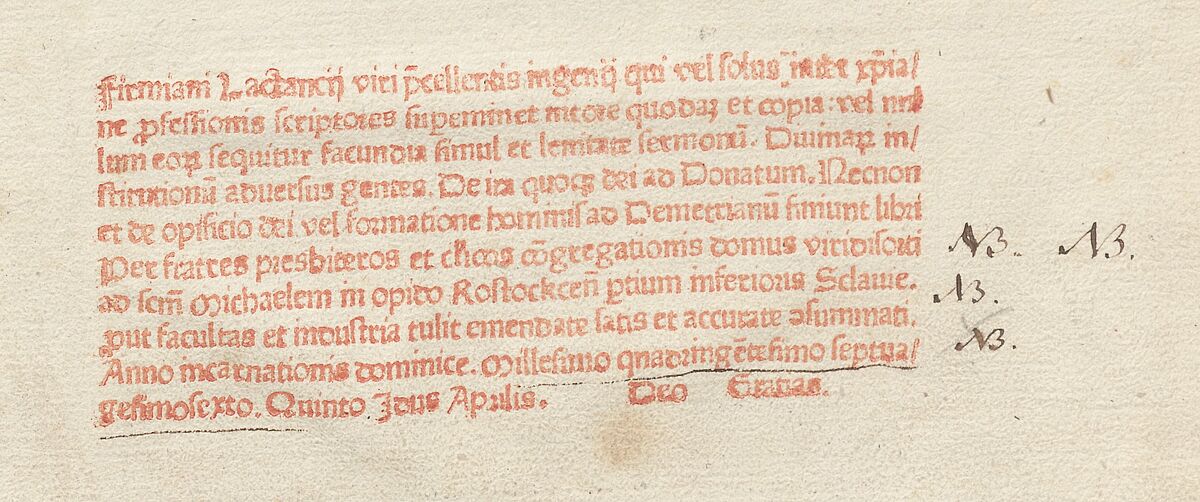 Firmiani Lactancij viri p̄cellentis ingenij qui vel solus īnt̄ xp̄ia/
ne ꝓfessionis scriptores suꝑeminet nitore quodaꝫ et copia: vel nul
lum eoꝝ sequitur facundia simul et lenitate sermonū. Diuinaꝝ in/
stitutionū aduersus gentes. De ira quoqꝫ dei ad Donatum. Necnon
et de opificio dei vel formatione hominis ad Demetrianū finiunt libri
Per fratres presbiteros et cl̄icos cōgregationis domus viridisorti
ad scm̄ Michaelem in opido Rostockceñ ꝑtium inferioris Sclauie.
ꝓut facultas et industria tulit emendate satis et accurate ꝯsummati.
Anno incarnationis dominice. Millesimo quadringētesimo septua/
gesimosexto. Quinto Idus Aprilis. Deo Gratias.
NB. NB.
NB.
NB.